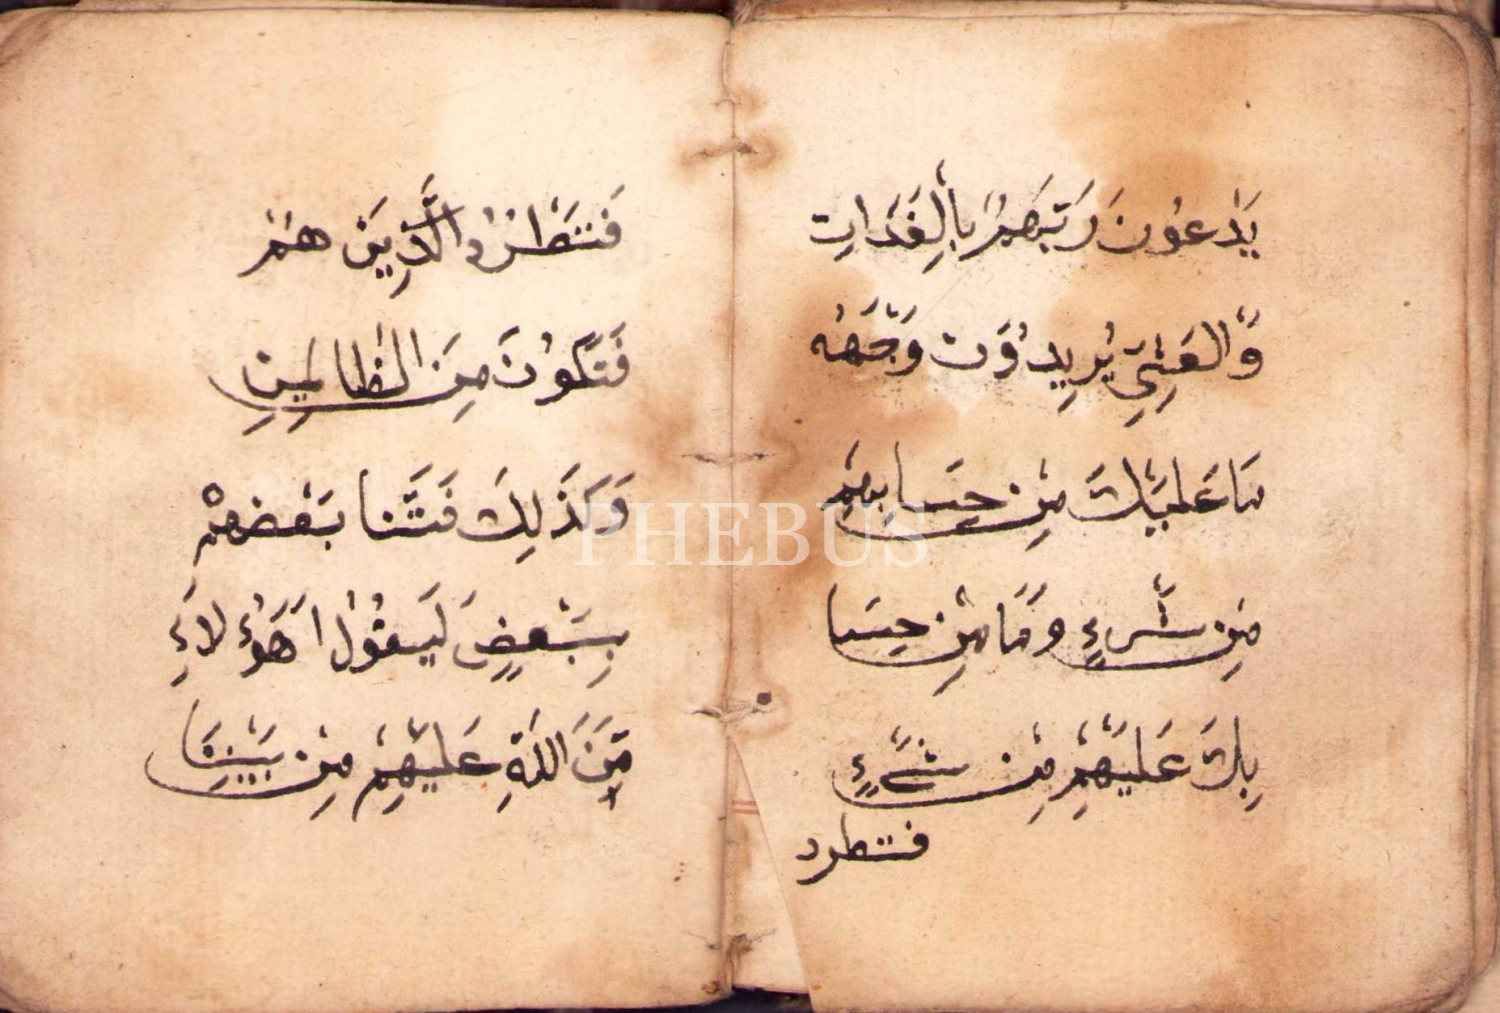 يَدْعُونَ رَبَّهُمْ بِالْغَدَاتِ
وَالْعَشِيِّ يُرِيدُوْنَ وَجْهَهُ
مَا عَلَيْكَ مِنْ حِسَابِهِمْ
مِنْ شَيءٍ وَمَا مِنْ حِسَا
بِكَ عَلَيْهِمْ مِنْ شَيْءٍ
فتطرد
فَتَطْرُدْ الَّذِيَن هُمْ
فَتَكُونَ مِنَ الظَّالِمِينِ
وَكَذَلِكَ فَتَّنا بَعْضهمْ
بِبَعْضٍ لَيَقُوْلُ اَهَؤُلاَءِ
مَنَّ اللَّهِ عَلَيْهِمْ مِنْ بَيْنِنَا
PHEBUS